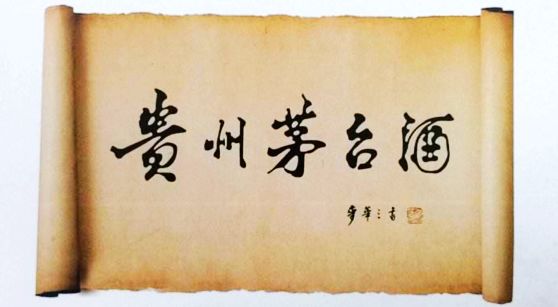 貴州茅台酒